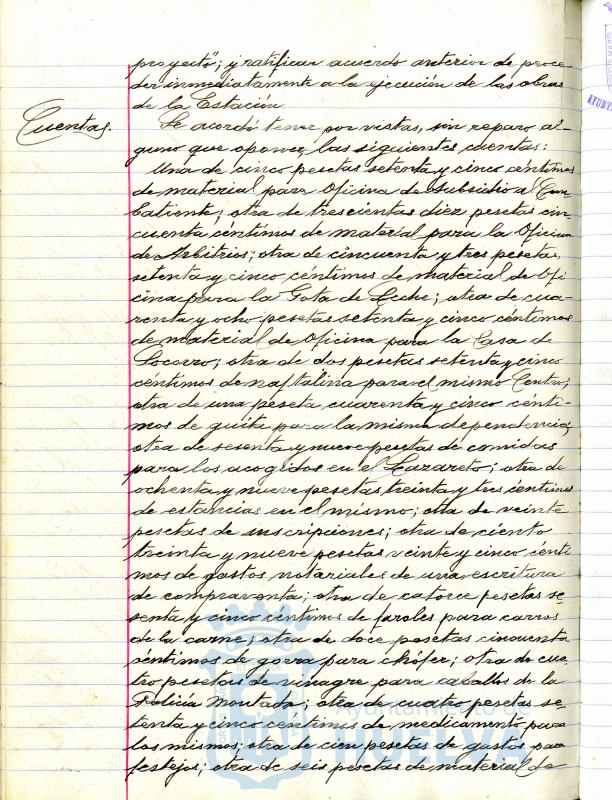 proyecto"; y ratificar acuerdo anterior de proce-
der inmediatamente a la ejecución de las obras
de la Estación
Cuentas.
Se acordó tener por vistas, sin reparo al-
guno que oponer, las siguientes cuentas:
Una de cinco pesetas setenta y cinco céntimos
de material para Oficina de Subsidio al Com-
batiente; otra de trescientas diez pesetas cin-
cuenta céntimos de material para la Oficina
de Arbitrios; otra de cincuenta y tres pesetas
setenta y cinco céntimos de material de Ofi
cina para la Gota de Leche; otra de cua-
renta y ocho pesetas setenta y cinco céntimos
de material de Oficina para la Casa de
Socorro; otra de dos pesetas setenta y cinco
céntimos de naftalina para el mismo Centro;
otra de una peseta cuarenta y cinco cénti-
mos de guita para la misma dependencia;
otra de sesenta y nueve pesetas de comidas
para los acogidos en el Lazareto; otra de
ochenta y nueve pesetas treinta y tres céntimos
de estancias en el mismo; otra de veinte
pesetas de suscripciones; otra de ciento
treinta y nueve pesetas veinte y cinco cénti
mos de gastos notariales de una escritura
de compraventa; otra de catorce pesetas se-
senta y cinco céntimos de faroles para carros
de la carne; otra de doce pesetas cincuenta
céntimos de gorra para chófer; otra de cua
tro pesetas de vinagre para caballos de la
Policía Montada; otra de cuatro pesetas se-
tenta y cinco céntimos de medicamento para
los mismos; otra de cien pesetas de gastos para
festejos; otra de seis pesetas de material de
Ayuntamiento de
HUELVA